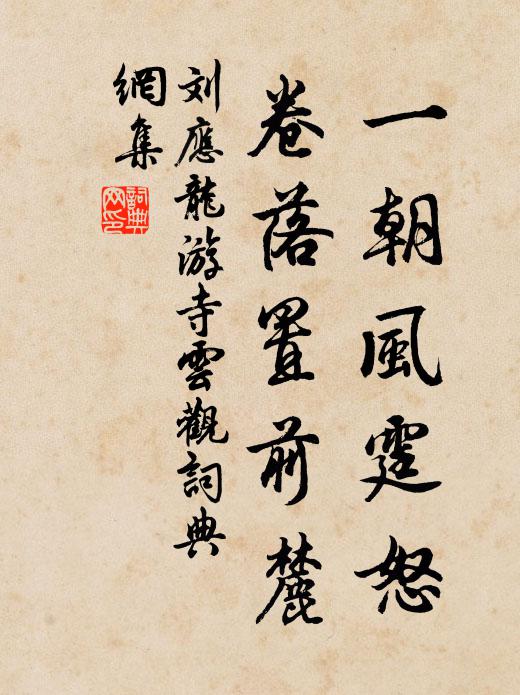 一朝風霆怒
卷落置前麓
刘應龍游寺雲觀詞典
網集
詞典
网印